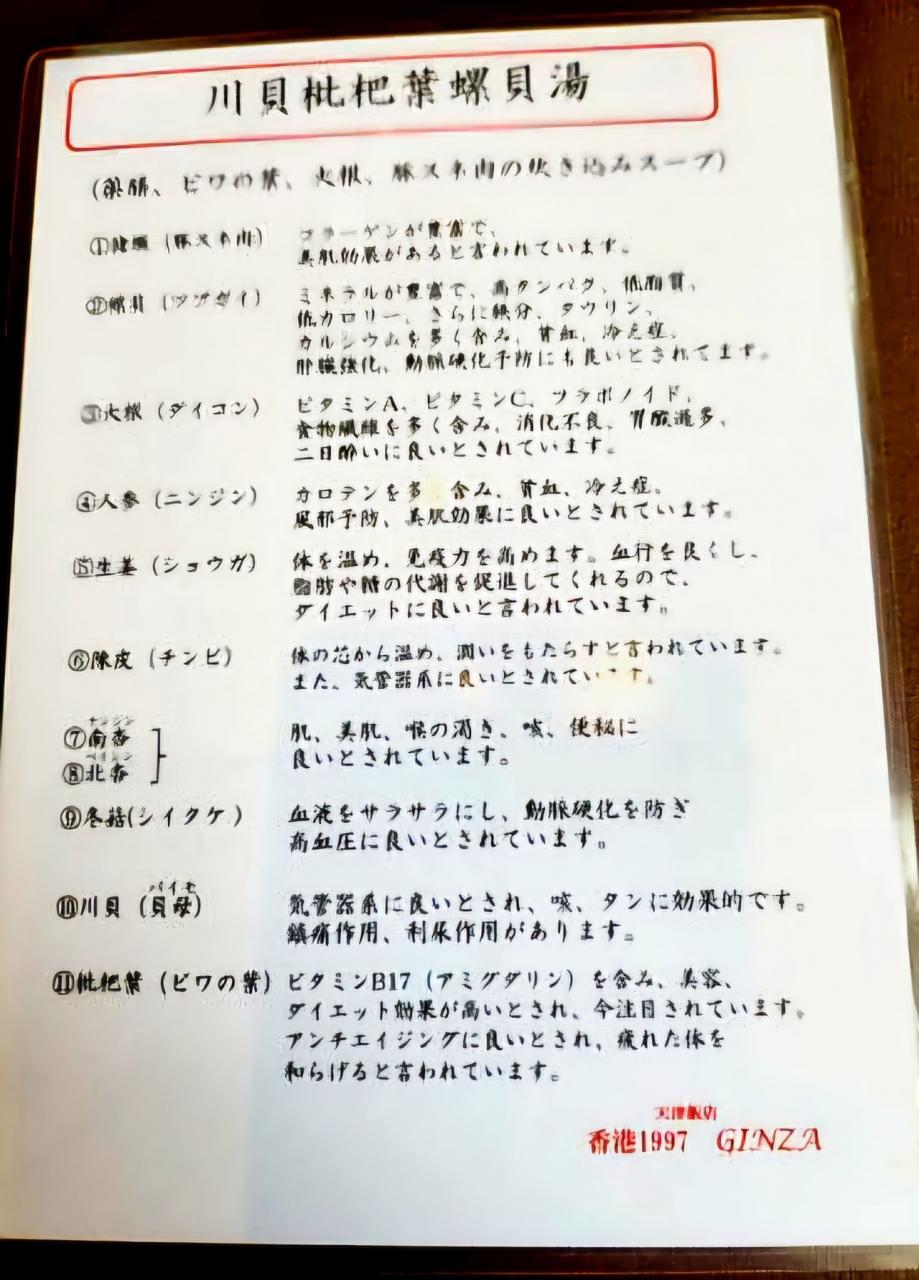 川貝枇杷葉螺貝湯
(薬膳、ビワの葉、大根、豚スネ肉の炊き込みスープ)
① (豚スネ肉) コラーゲンが豊富で、
美肌効果があると言われています。
② (ツブガイ) ミネラルが豊富で、高タンパク、低脂質、
低カロリー、さらに鉄分、タウリン、
カルシウムを多く含み、貧血、冷え症、
肝臓強化、動脈硬化予防にも良いとされてます。
③大根 (ダイコン) ビタミンA、ビタミンC、フラボノイド、
食物繊維を多く含み、消化不良、胃酸過多、
二日酔いに良いとされています。
④人参 (ニンジン) カロテンを多 含み、貧血、冷え症。
風邪予防、美肌効果に良いとされています。
⑤生姜 (ショウガ) 体を温め、免疫力を高めます。血行を良くし、
脂肪や糖の代謝を促進してくれるので、
ダイエットに良いと言われています。
⑥陳皮 (チンピ) 体の芯から温め、潤いをもたらすと言われています。
また、気管器系に良いとされてい す。
⑦南杏 肌、美肌、喉の渇き、咳、便秘に
⑧北杏 良いとされています。
⑨冬菇(シイタケ) 血液をサラサラにし、動脈硬化を防ぎ
高血圧に良いとされています。
バイモ
⑩川貝 (貝母) 気管器系に良いとされ、咳、タンに効果的です。
鎮痛作用、利尿作用があります。
⑪枇杷葉 (ビワの葉) ビタミンB17 (アミグダリン) を含み、美容、
ダイエット効果が高いとされ、今注目されています。
アンチエイジングに良いとされ、疲れた体を
和らげると言われています。
飯店
香港1997 GINZA